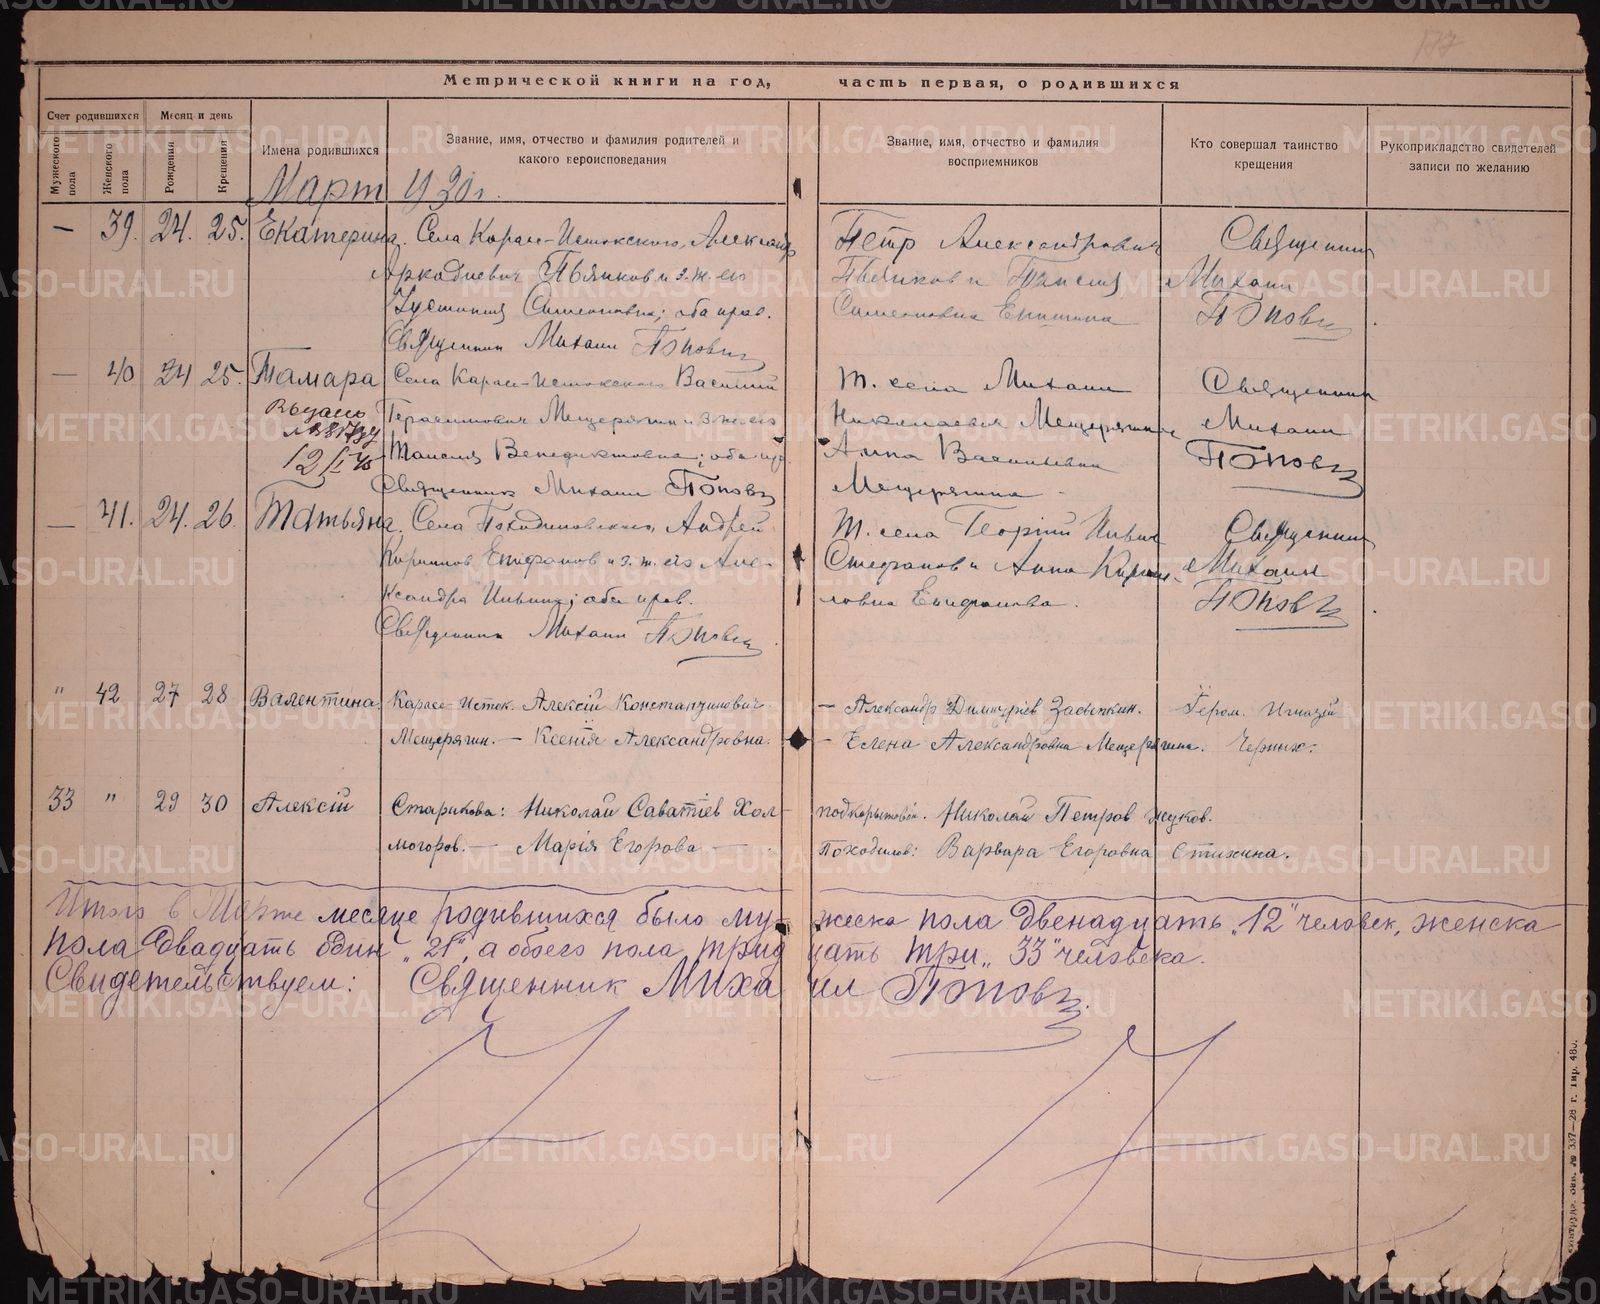 177
Метрической книги на год, часть первая, о родившихся
Счет родившихся
Месяц и день
Мужеского пола
Женского пола
Рождения
Крещения
Имена родившихся
Звание, имя, отчество и фамилия родителей и
какого вероисповедания
Звание, имя, отчество и фамилия
восприемников
Кто совершал таинство
крещения
Рукоприкладство свидетелей
записи по желанию
Март 1930 г.
— 39. 24. 25. Екатерина.
Села Карасе-Истокского, Александр
Аркадиевич Пьянков и з. ж. его
Устиния Симеоновна; оба прав.
Священник Михаил Попов
Петр Александрович
Пьянков и Таисия
Симеоновна
Священник
Михаил
Попов
— 40 24 25. Тамара
Выдано
12/I 45
Села Карасе-Истокского Василий
Герасимович Мещерягин и з. ж. его
Таисия Венедиктовна; оба пр.
Священник Михаил Попов
Т. села Михаил
Николаевич Мещерягин
Анна Васильевна
Мещерягина
Священник
Михаил
Попов
— 41. 24. 26. Татьяна.
Села Походиловского, Андрей
Кириллов Епифанов и з. ж. его Але-
ксандра Ильина; оба прав.
Священник Михаил Попов
Т. села Георгий Ильич
Стефанов и Анна Кирил-
ловна Епифанова.
Священник
Михаил
Попов
" 42 27 28 Валентина.
Карасе-Исток. Алексій Константинович
Мещерягин. — Ксенія Александровна.
— Александр Димитріев Засыпкин.
— Елена Александровна Мещерягина.
Іером. Игнатій
Черных.
33 " 29 30 Алексій
Старикова: Николай Саватіев Хол-
могоров. — Марія Егорова —
подкорытовой. Николай Петров Жуков.
Походилов: Варвара Егоровна Стихина.
Итого в Марте месяце родившихся было му-жеска пола двенадцать „12" человек, женска
пола двадцать один „21", а обоего пола тридцать три „33" человека.
Свидетельствуем: Священник Михаил Попов
METRIKI.GASO-URAL.RU